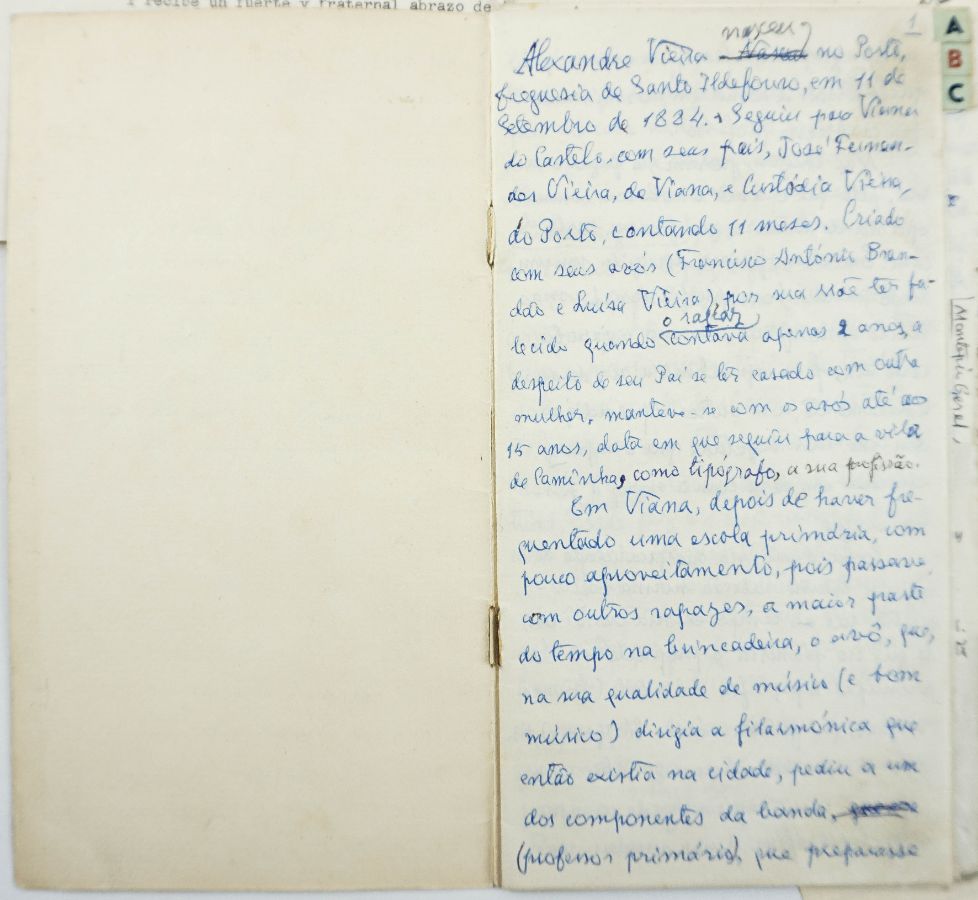 Y recibe un fuerte y fraternal abrazo de
1
A
B
C
nasceu
Alexandre Vieira no Porto,
freguesia de Santo Ildefonso, em 11 de
Setembro de 1884. Seguiu para Viana
do Castelo, com seus pais, José Fernan-
des Vieira, de Viana, e Custódia Vieira,
do Porto, contando 11 meses. Criado
com seus avós (Francisco António Bran-
dão e Luísa Vieira), por sua Mãe ter fa-
o rapaz
lecido quando contava apenas 2 anos, a
despeito de seu Pai se ter casado com outra
mulher, manteve-se com os avós até aos
15 anos, data em que seguiu para a vila
de Caminha, como tipógrafo, a sua profissão.
Em Viana, depois de haver fre-
quentado uma escola primária, com
pouco aproveitamento, pois passava,
com outros rapazes, a maior parte
do tempo na brincadeira, o avô, que,
na sua qualidade de músico (e bom
músico) dirigia a filarmónica que
então existia na cidade, pediu a um
dos componentes da banda,
(professor primário), que preparasse
Montepio Geral,